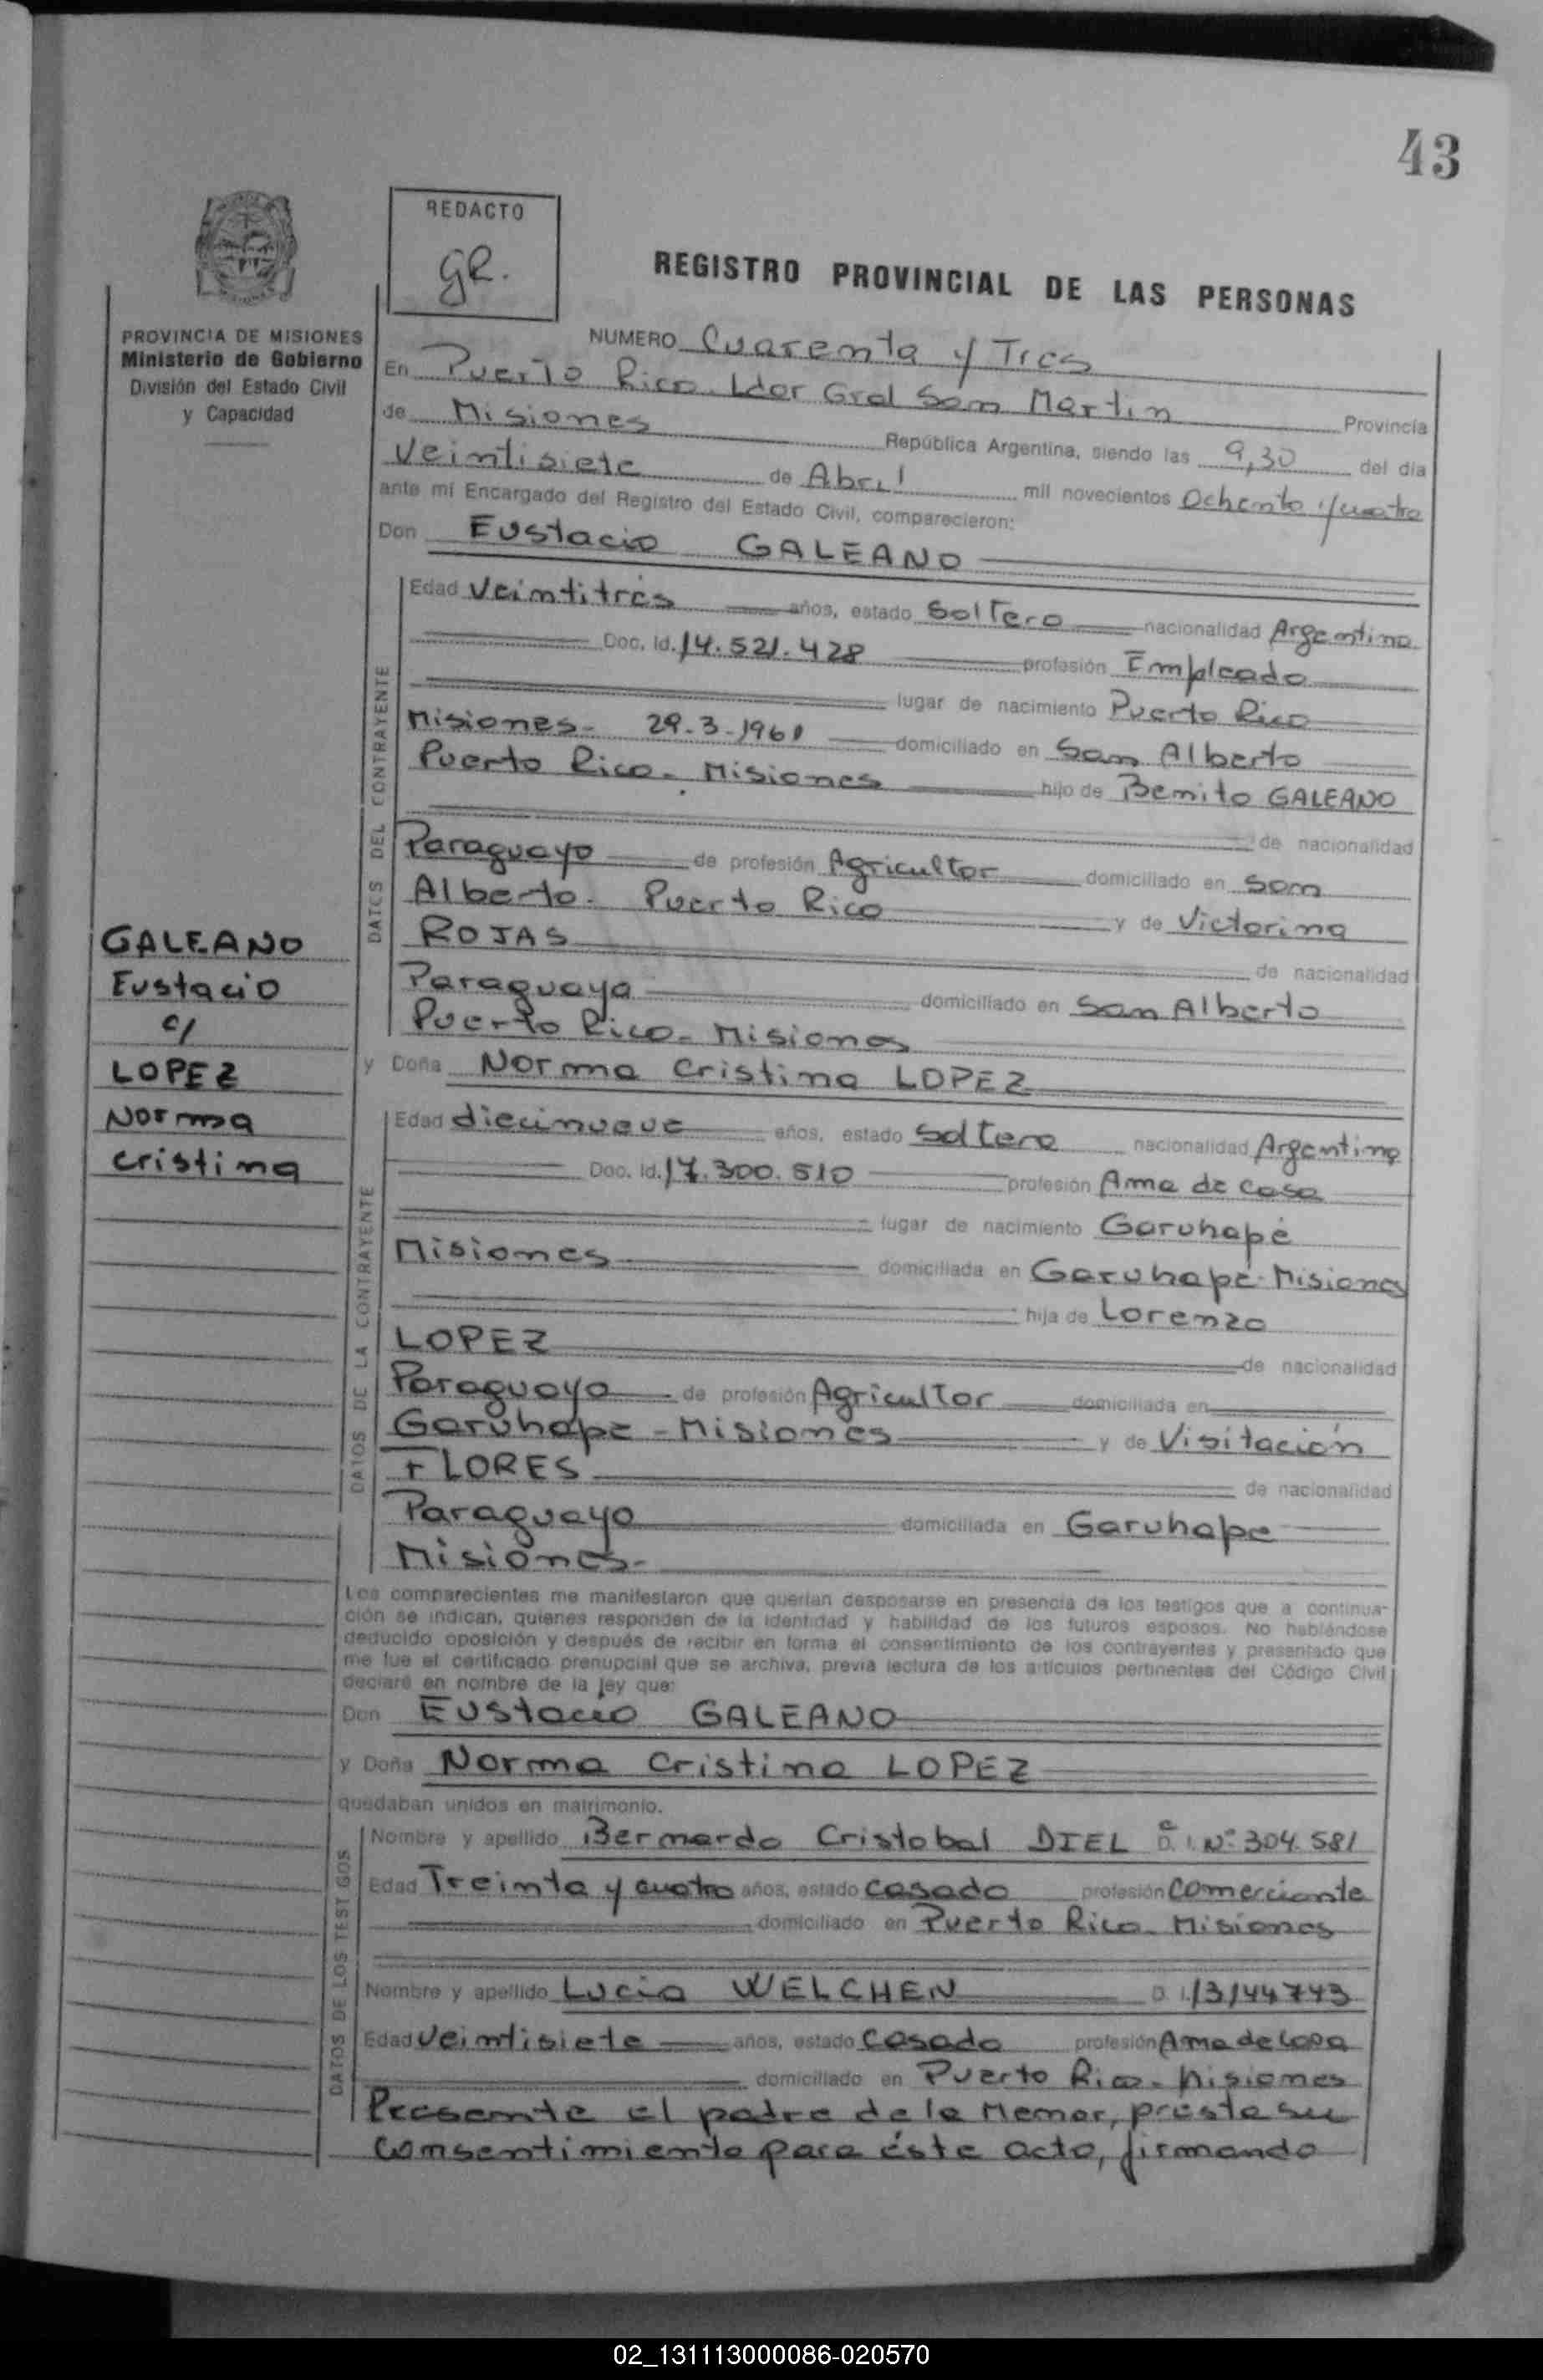 43
REDACTO
gR.
REGISTRO PROVINCIAL DE LAS PERSONAS
PROVINCIA DE MISIONES
Ministerio de Gobierno
División del Estado Civil
y Capacidad
NUMERO Cuarenta y Tres
En Puerto Rico. Ldor Gral San Martin
de Misiones Provincia
República Argentina, siendo las 9,30 del día
veintisiete de Abril mil novecientos Ochenta y cuatro
ante mi Encargado del Registro del Estado Civil, comparecieron:
Don Eustacio GALEANO
DATOS DEL CONTRAYENTE
Edad Veintitrés años, estado Soltero nacionalidad Argentina
Doc. Id. 14.521.428 profesión Empleado
lugar de nacimiento Puerto Rico
Misiones - 29-3-1961 domiciliado en San Alberto
Puerto Rico - Misiones hijo de Benito GALEANO
de nacionalidad
Paraguayo de profesión Agricultor domiciliado en San
Alberto - Puerto Rico y de Victorina
ROJAS de nacionalidad
Paraguaya domiciliado en San Alberto
Puerto Rico - Misiones
GALEANO
Eustacio
c/
LOPEZ
Norma
Cristina
y Doña Norma Cristina LOPEZ
DATOS DE LA CONTRAYENTE
Edad diecinueve años, estado Soltera nacionalidad Argentina
Doc. Id. 17.300.510 profesión Ama de Casa
lugar de nacimiento Garuhapé
Misiones domiciliada en Garuhapé - Misiones
hija de Lorenzo
LOPEZ de nacionalidad
Paraguayo de profesión Agricultor domiciliada en
Garuhape - Misiones y de Visitación
FLORES de nacionalidad
Paraguayo domiciliada en Garuhape
Misiones -
Los comparecientes me manifestaron que querían desposarse en presencia de los testigos que a continua-
ción se indican, quienes responden de la identidad y habilidad de los futuros esposos. No habiéndose
deducido oposición y después de recibir en forma el consentimiento de los contrayentes y presentado que
me fue el certificado prenupcial que se archiva, previa lectura de los artículos pertinentes del Código Civil
declaré en nombre de la ley que:
Don Eustacio GALEANO
y Doña Norma Cristina LOPEZ
quedaban unidos en matrimonio.
DATOS DE LOS TESTIGOS
Nombre y apellido Bernardo Cristobal DIEL C. I. Nº 304.581
Edad Treinta y cuatro años, estado casado profesión comerciante
domiciliado en Puerto Rico - Misiones
Nombre y apellido Lucia WELCHEN D. I. 13144743
Edad veintisiete años, estado casada profesión Ama de Casa
domiciliado en Puerto Rico - Misiones
Presente el padre de la Menor, presta su
Consentimiento para éste acto, firmando
02_131113000086-020570